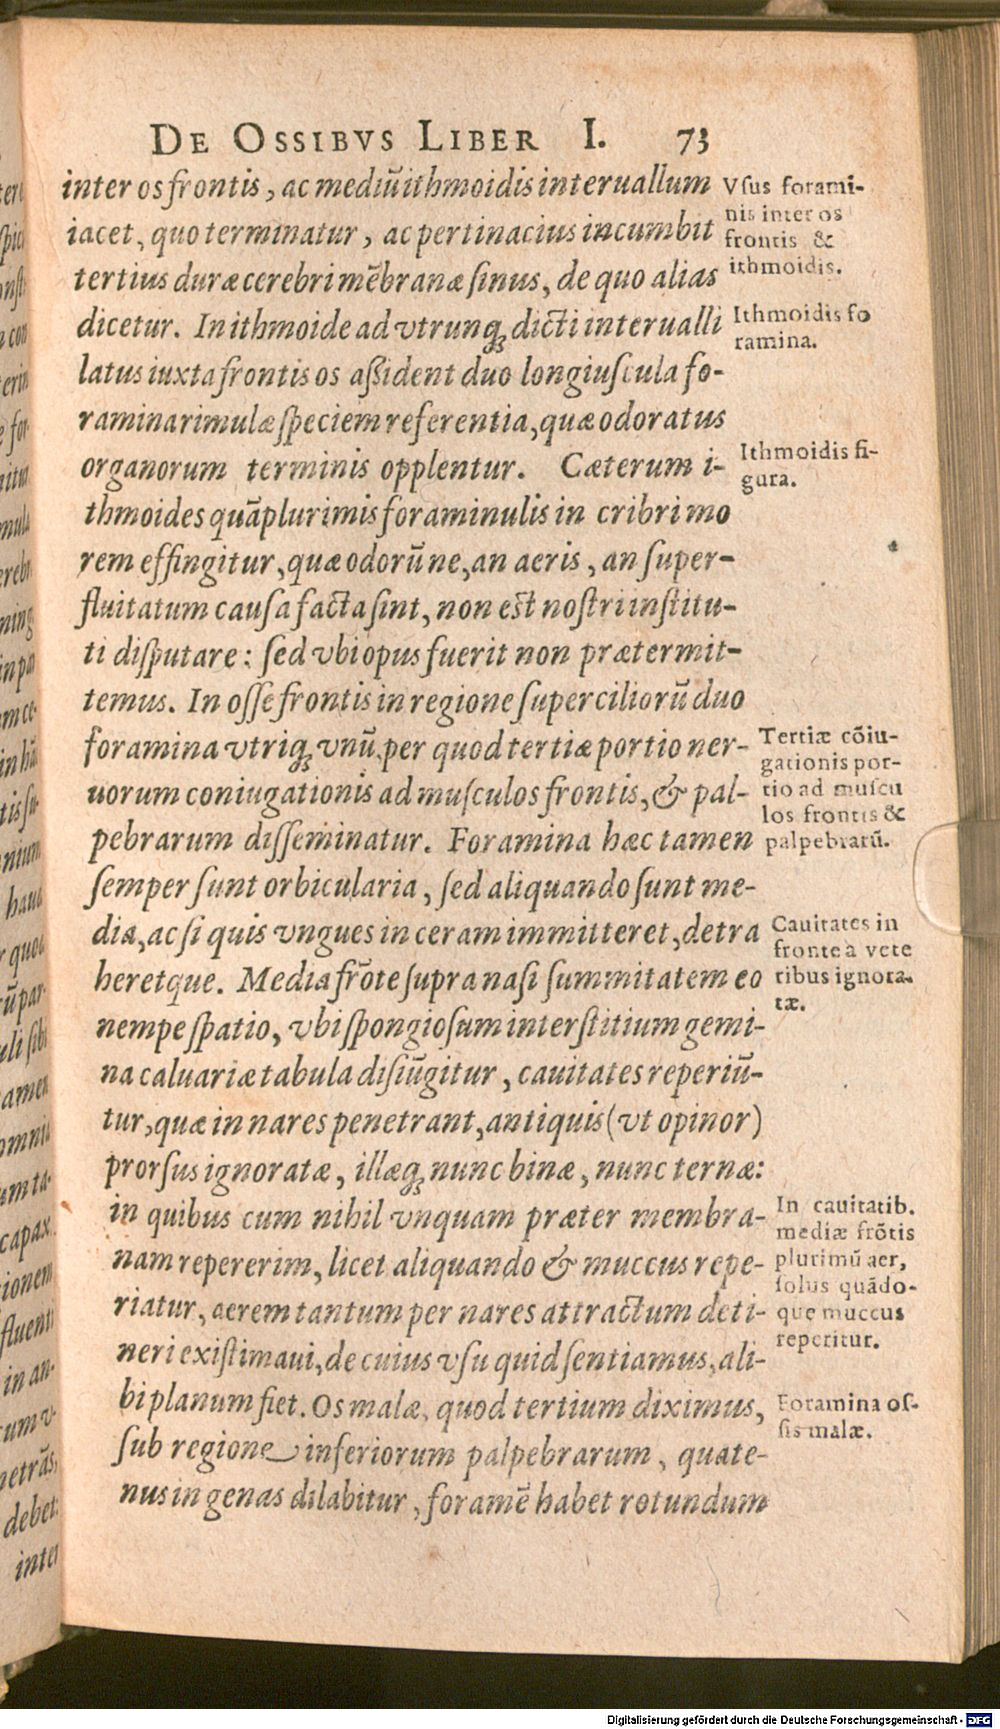 DE OSSIBVS LIBER I. 73
inter os frontis, ac mediũ ithmoidis interuallum
iacet, quo terminatur, ac pertinacius incumbit
tertius duræ cerebri mẽbranæ ſinus, de quo alias
dicetur. In ithmoide ad vtrunq; dicti interualli
latus iuxta frontis os aßident duo longiuſcula fo-
ramina rimulæ ſpeciem referentia, quæ odoratus
organorum terminis opplentur. Cæterum i-
thmoides quã plurimis foraminulis in cribri mo
rem effingitur, quæ odorũ ne, an aeris, an ſuper-
fluitatum cauſa facta ſint, non eſt noſtri inſtitu-
ti diſputare: ſed vbi opus fuerit non prætermit-
temus. In oſſe frontis in regione ſuperciliorũ duo
foramina vtriq; vnũ, per quod tertiæ portio ner-
uorum coniugationis ad muſculos frontis, & pal-
pebrarum diſſeminatur. Foramina hæc tamen
ſemper ſunt orbicularia, ſed aliquando ſunt me-
dia, ac ſi quis vngues in ceram immitteret, detra
heretque. Media frõte ſupra naſi ſummitatem eo
nempe ſpatio, vbi ſpongioſum interſtitium gemi-
na caluariæ tabula diſiũgitur, cauitates reperiũ-
tur, quæ in nares penetrant, antiquis (vt opinor)
prorſus ignoratæ, illæq; nunc binæ, nunc ternæ:
in quibus cum nihil vnquam præter membra-
nam repererim, licet aliquando & muccus repe-
riatur, aerem tantum per nares attractum deti-
neri exiſtimaui, de cuius vſu quid ſentiamus, ali-
bi planum fiet. Os malæ, quod tertium diximus,
ſub regione inferiorum palpebrarum, quate-
nus in genas dilabitur, foramẽ habet rotundum
Vſus forami-
nis inter os
frontis &
ithmoidis.
Ithmoidis fo
ramina.
Ithmoidis fi-
gura.
Tertiæ cõiu-
gationis por-
tio ad muſcu
los frontis &
palpebrarũ.
Cauitates in
fronte à vete
ribus ignora-
tæ.
In cauitatib.
mediæ frõtis
plurimũ aer,
ſolus quãdo-
que muccus
reperitur.
Foramina oſ-
ſis malæ.
Digitalisierung gefördert durch die Deutsche Forschungsgemeinschaft - DFG